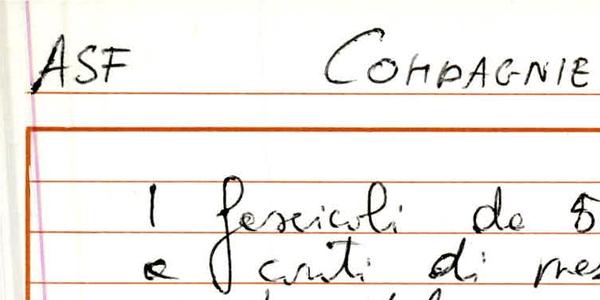 ASF COMPAGNIE
I fascicoli da 8
e conti di mes